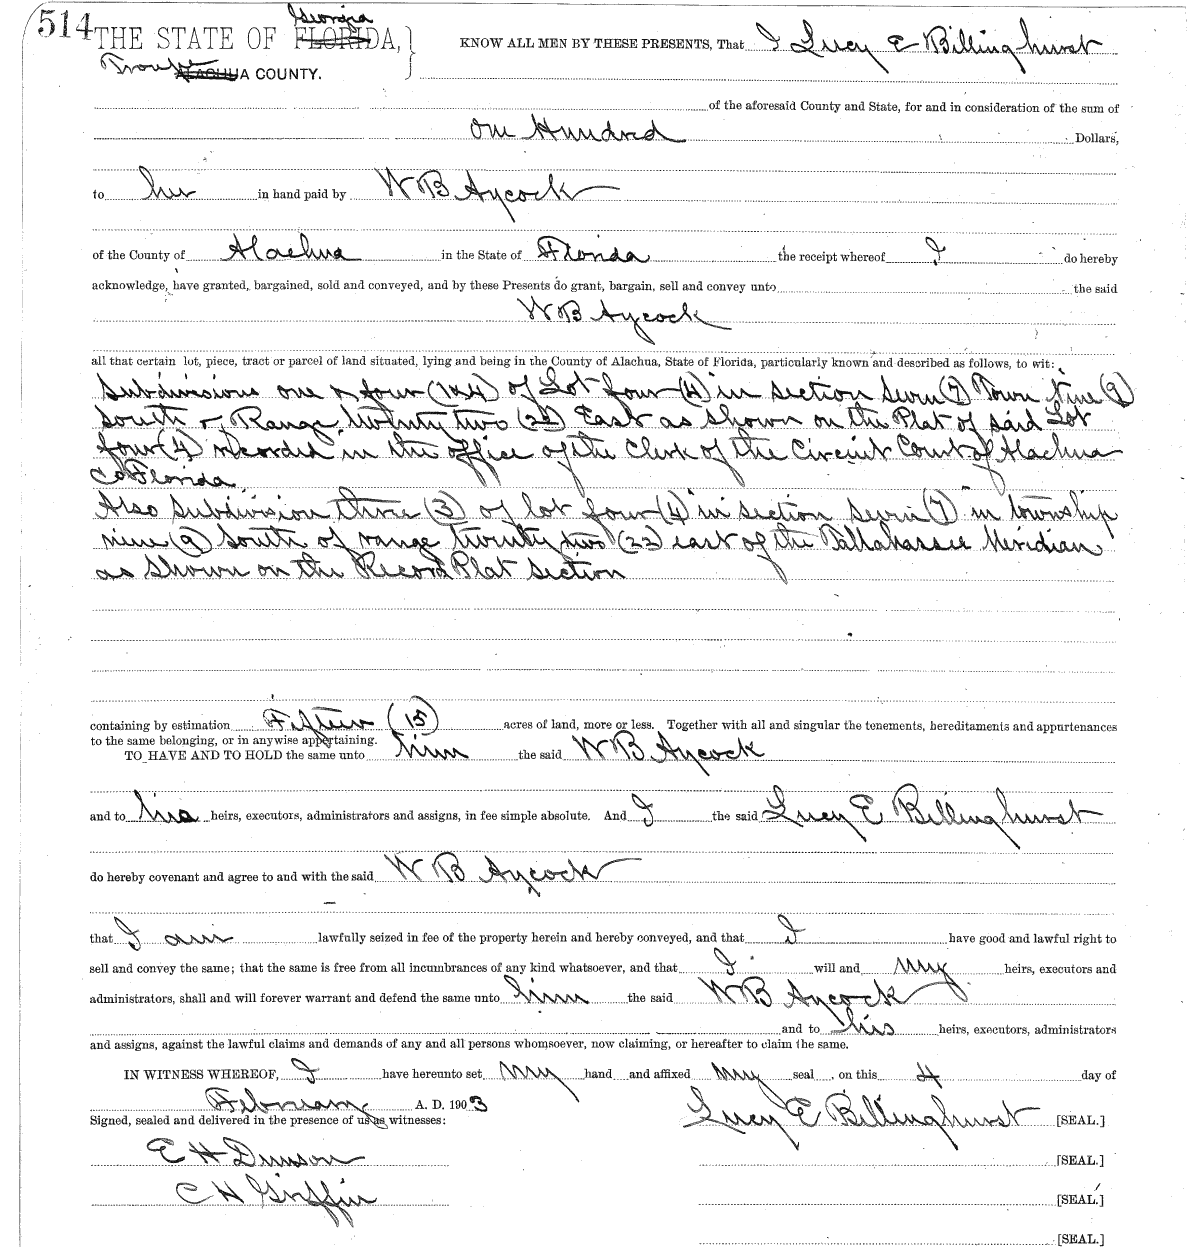 514
Georgia
THE STATE OF FLORIDA,
Troup ALACHUA COUNTY.
KNOW ALL MEN BY THESE PRESENTS, That I Lucy E Billinghurst
of the aforesaid County and State, for and in consideration of the sum of
One Hundred Dollars,
to her in hand paid by W B Aycock
of the County of Alachua in the State of Florida the receipt whereof I do hereby
acknowledge, have granted, bargained, sold and conveyed, and by these Presents do grant, bargain, sell and convey unto the said
W B Aycock
all that certain lot, piece, tract or parcel of land situated, lying and being in the County of Alachua, State of Florida, particularly known and described as follows, to wit:
Subdivisions one & four (1&4) of Lot four (4) in section Seven (7) Town Nine (9)
South of Range twenty two (22) East as shown on the Plat of said Lot
four (4) recorded in the office of the Clerk of the Circuit Court of Alachua
Co Florida
Also Subdivision three (3) of lot four (4) in section seven (7) in township
nine (9) South of range twenty two (22) east of the Tallahassee Meridian
as shown on the Record Plat section
containing by estimation Fifteen (15) acres of land, more or less. Together with all and singular the tenements, hereditaments and appurtenances
to the same belonging, or in anywise appertaining.
TO HAVE AND TO HOLD the same unto him the said W B Aycock
and to his heirs, executors, administrators and assigns, in fee simple absolute. And I the said Lucy E Billinghurst
do hereby covenant and agree to and with the said W B Aycock
that I am lawfully seized in fee of the property herein and hereby conveyed, and that I have good and lawful right to
sell and convey the same; that the same is free from all incumbrances of any kind whatsoever, and that I will and my heirs, executors and
administrators, shall and will forever warrant and defend the same unto him the said W B Aycock
and to his heirs, executors, administrators
and assigns, against the lawful claims and demands of any and all persons whomsoever, now claiming, or hereafter to claim the same.
IN WITNESS WHEREOF, I have hereunto set my hand and affixed my seal, on this 4 day of
February A. D. 1903 Lucy E Billinghurst [SEAL.]
Signed, sealed and delivered in the presence of us as witnesses:
E H Dunson [SEAL.]
C H Griffin [SEAL.]
[SEAL.]